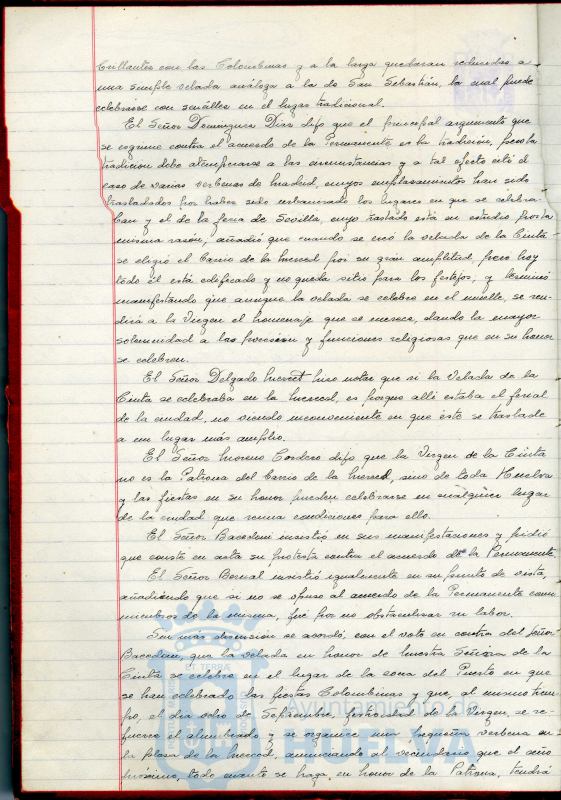 brillantes con las Colombinas y a la larga quedaran reducidas a
una simple velada análoga a la de San Sebastián, la cual puede
celebrarse con sencillez en el lugar tradicional.
El Señor Dominguez Diaz dijo que el principal argumento que
se esgrime contra el acuerdo de la Permanente es la tradición, pero la
tradicion debe atemperarse a las circunstancias y a tal efecto citó el
caso de varias verbenas de Madrid, cuyos emplazamientos han sido
trasladados por haber sido urbanizado los lugares en que se celebra-
ban y el de la feria de Sevilla, cuyo traslado está en estudio por la
misma razon; añadió que cuando se creó la velada de la Cinta
se eligió el barrio de la Merced por su gran amplitud, pero hoy
todo él está edificado y no queda sitio para los festejos, y terminó
manifestando que aunque la velada se celebre en el muelle, se ren-
dirá a la Virgen el homenaje que se merece, dando la mayor
solemnidad a las procesion y funciones religiosas que en su honor
se celebren.
El Señor Delgado hizo notar que si la Velada de la
Cinta se celebraba en la Merced, es porque alli estaba el ferial
de la ciudad, no viendo inconveniente en que éste se traslade
a un lugar más amplio.
El Señor Moreno Cordero dijo que la Virgen de la Cinta
no es la Patrona del barrio de la Merced, sino de toda Huelva
y las fiestas en su honor pueden celebrarse en cualquier lugar
de la ciudad que reuna condiciones para ello.
El Señor Bacedoni insistió en sus manifestaciones y pidió
que conste en acta su protesta contra el acuerdo de la Permanente.
El Señor Bernal insistió igualmente en su punto de vista,
añadiendo que si no se opuso al acuerdo de la Permanente como
miembros de la misma, fué por no obstaculizar su labor.
Sin más discusión se acordó, con el voto en contra del Señor
Bacedoni, que la velada en honor de Nuestra Señora de la
Cinta se celebre en el lugar de la zona del Puerto en que
se han celebrado las fiestas Colombinas y que, al mismo tiem-
po, el dia ocho de Septiembre, festividad de la Virgen, se re-
fuerce el alumbrado y se organice una pequeña verbena en
la plaza de la Merced, anunciando al vecindario que el año
próximo, todo cuanto se haga en honor de la Patrona, tendrá
Ayuntamiento de
HUELVA